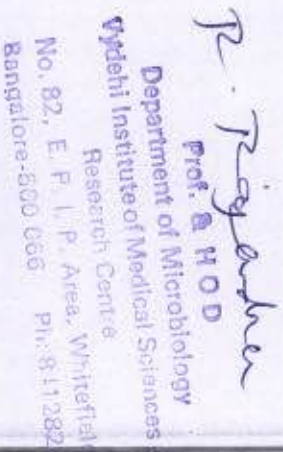 Prof. & H O D
Department of Microbiology
Vydehi Institute of Medical Sciences
Research Centre
No. 82, E. P. I. P. Area, Whitefield
Bangalore-560 066 Ph: